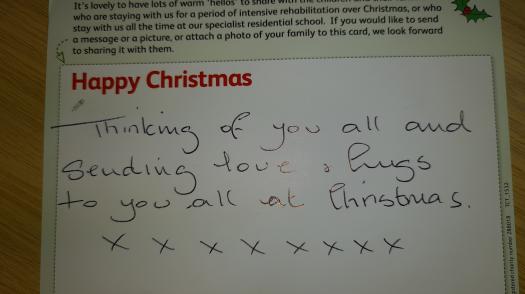 It's lovely to have lots of warm 'hellos' to share with the children and
who are staying with us for a period of intensive rehabilitation over Christmas, or who
stay with us all the time at our specialist residential school. If you would like to send
a message or a picture, or attach a photo of your family to this card, we look forward
to sharing it with them.
Happy Christmas
Thinking of you all and
Sending love & hugs
to you all at Christmas.
x x x x x x x x
registered charity number 288018 TCT_1532